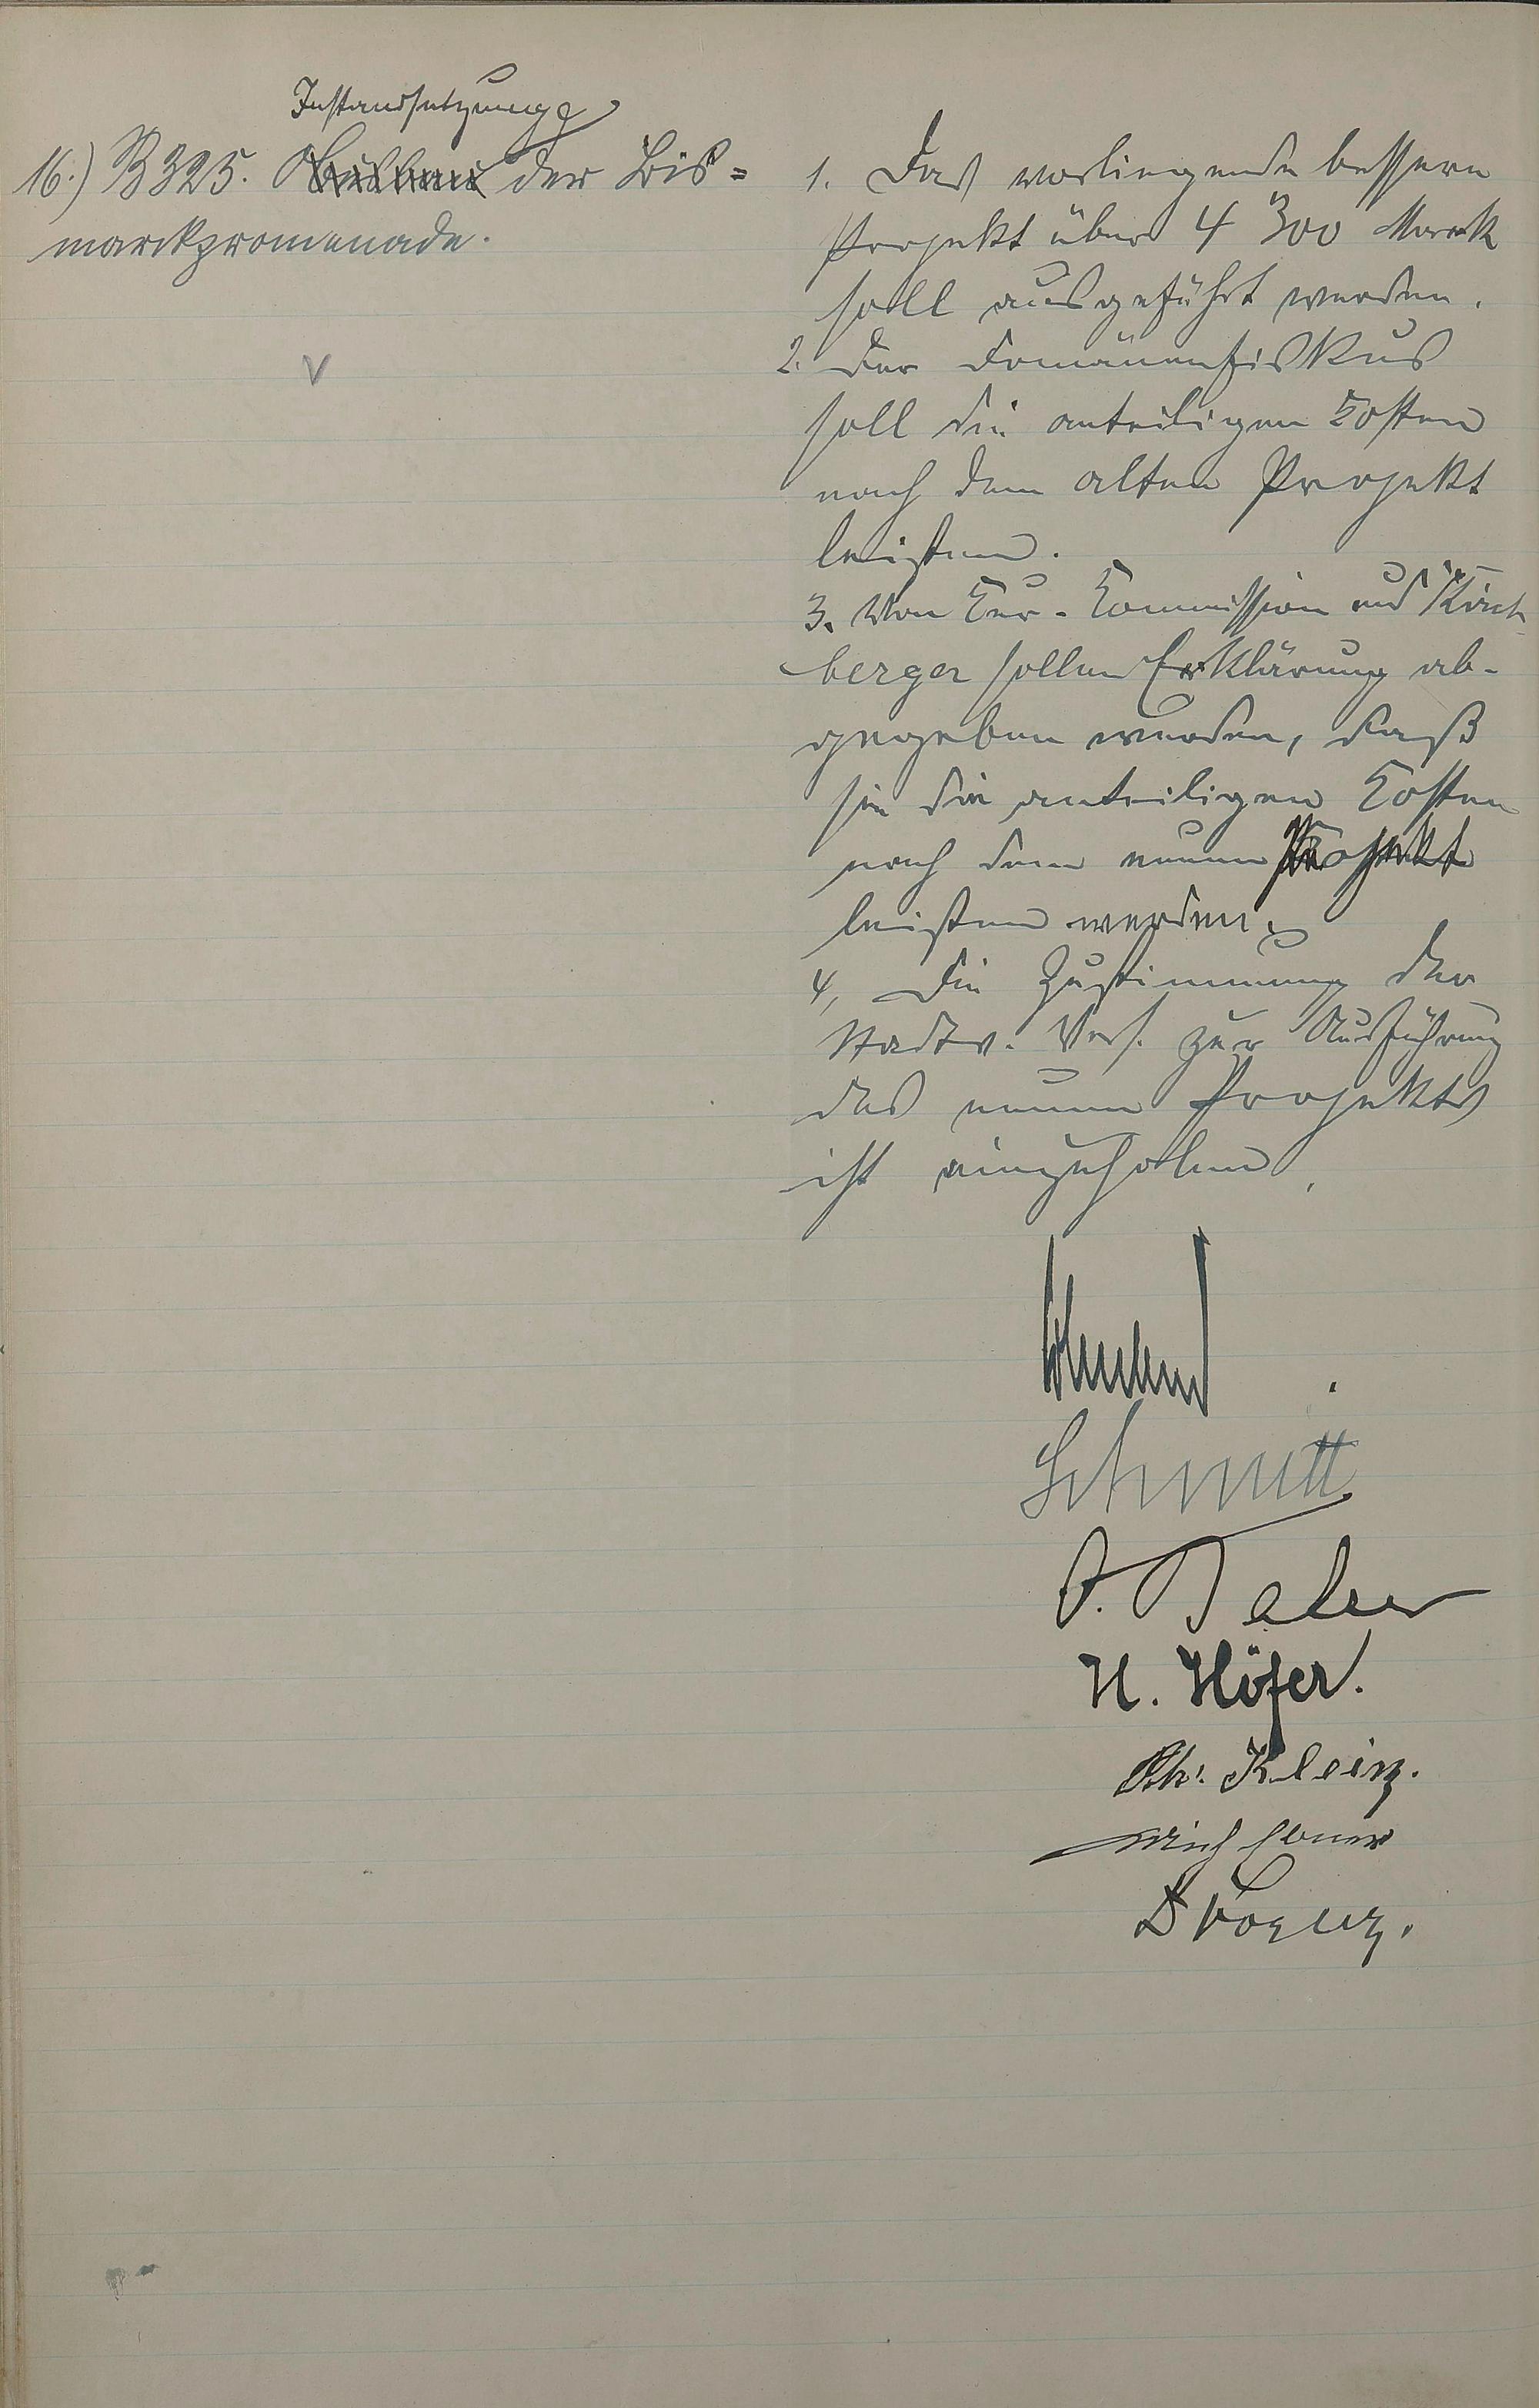 Instandsetzung
16.) B 325. Ausbau der Bis=
marckpromenade.
V
1. Das vorliegende bessere
Projekt über 4 300 Mark
soll ausgeführt werden.
2. Der Domänenfiskus
soll die anteiligen Kosten
nach dem alten Projekt
leisten.
3. Von Kur-Kommission und Kirch-
berger sollen Erklärung ab-
gegeben werden, daß
sie die anteiligen Kosten
nach dem neuen Projekt
leisten werden.
4. Die Zustimmung der
Stadtv. Vers. zur Ausführung
des neuen Projekts
ist einzuholen.
Schmitt
H. Höfer.
Ph. Klein.